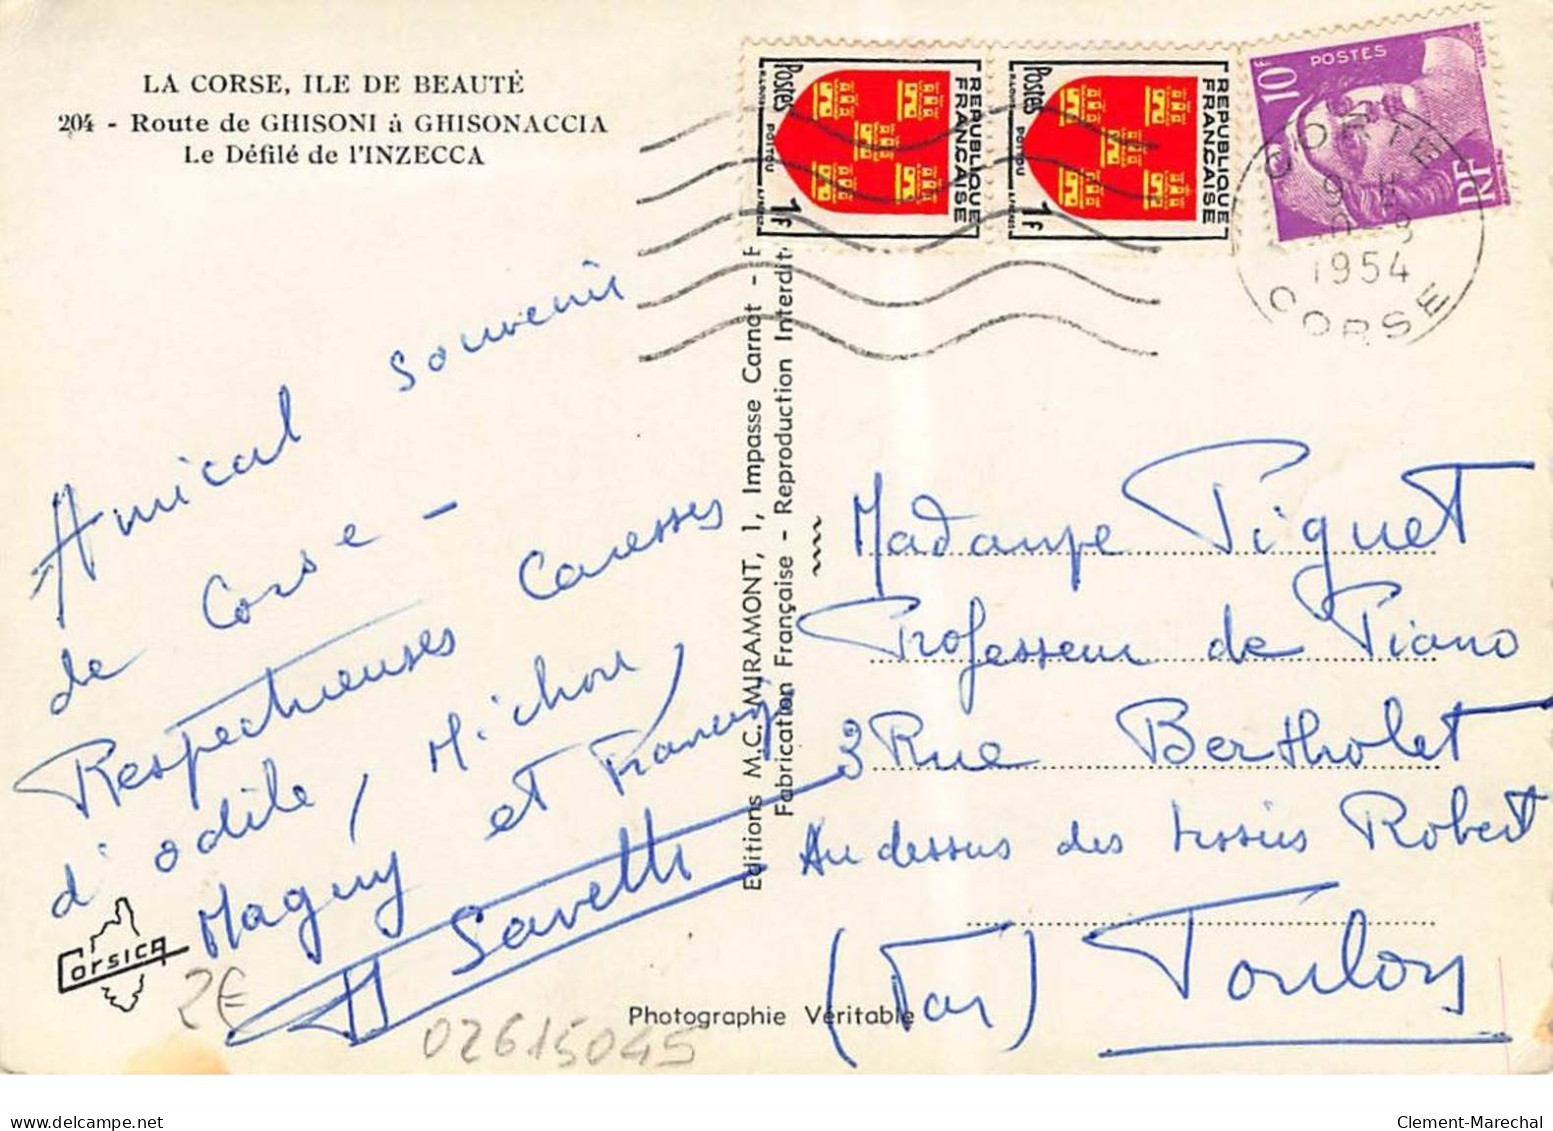 LA CORSE, ILE DE BEAUTÉ
204 - Route de GHISONI à GHISONACCIA
Le Défilé de l'INZECCA
Postes
POITOU
1F
REPUBLIQUE
FRANÇAISE
Postes
POITOU
1F
REPUBLIQUE
FRANÇAISE
10F
POSTES
RF
CORTE
9 H
1954
CORSE
Amical souvenir
de Corse -
Respectueuses caresses
d'odile, Michou,
Maguy et
H Savelli
Editions M.C. MIRAMONT, 1, Impasse Carnot -
Fabrication Française - Reproduction Interdite
Madame Piguet
Professeur de Piano
3 Rue Bertholet
Au dessus des tissus Robert
(Var) Toulon
Corsica
2€
02615045
Photographie Véritable
Clement-Marechal